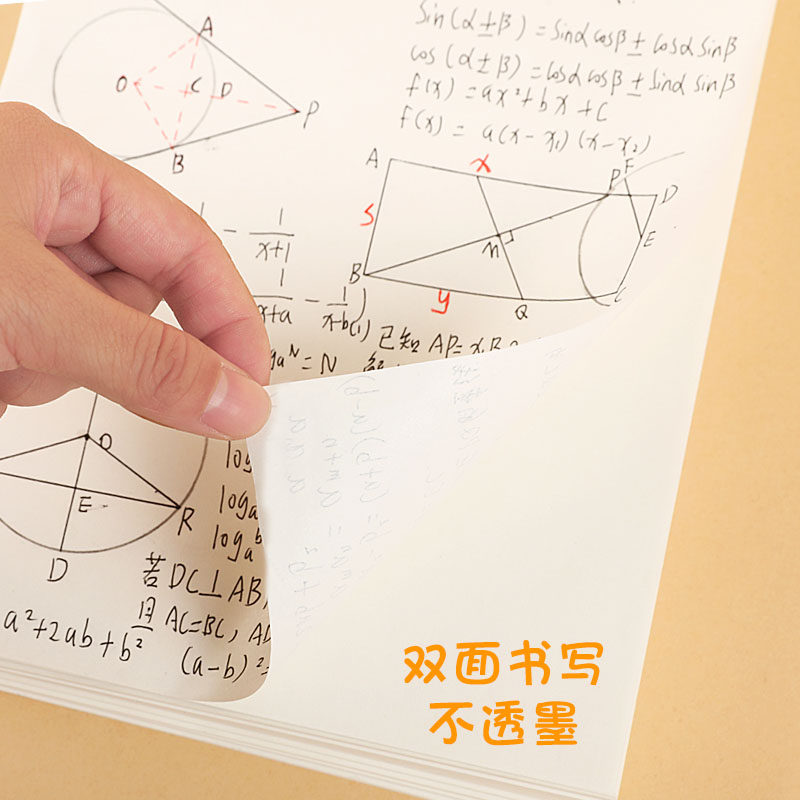 Sin(α±β)=Sinα cosβ ± cosα Sinβ
cos(α±β)=cosα cosβ ± Sinα Sinβ
f(x)=ax²+bx+c
f(x)= a(x-x₁)(x-x₂)
A
O
C
D
P
B
A
x
P
F
D
5
n
E
B
y
Q
C
- 1/(x+1)
1/(x+a) - 1/(x-b)
(1) 已知 AP=x,B
logₐN=N
O
E
R
D
log
logₐ
logₐb
若 DC⊥AB,
且 AC=BC,
a²+2ab+b²
(a-b)²=
双面书写
不透墨